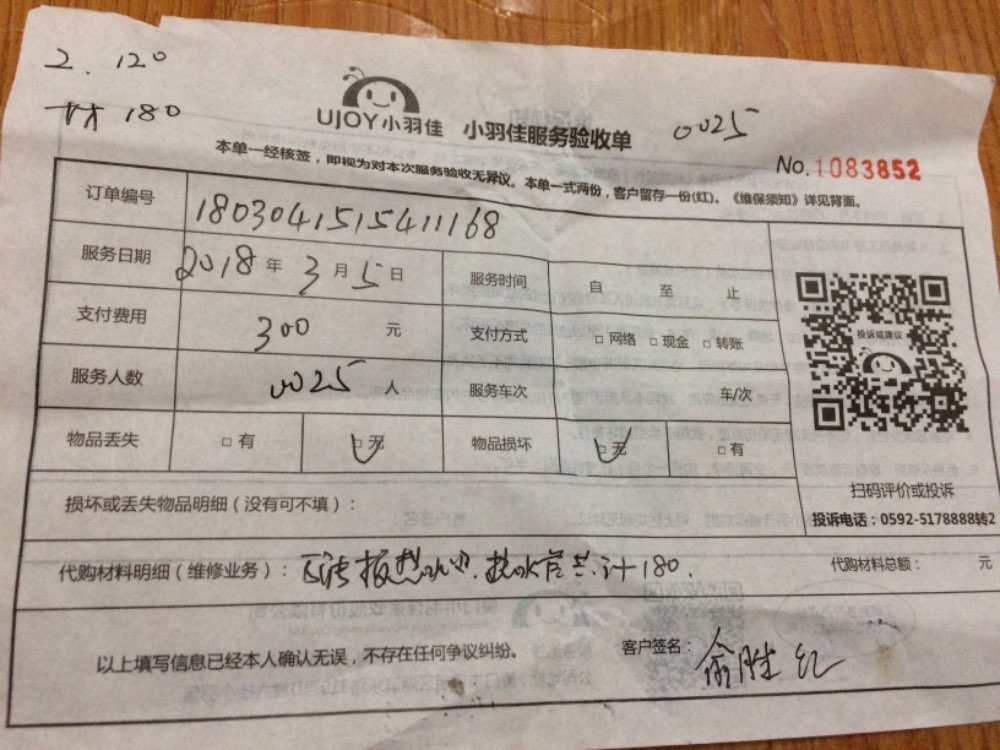 2. 120
材 180
UJOY小羽佳 小羽佳服务验收单 0025
本单一经核签，即视为对本次服务验收无异议。本单一式两份，客户留存一份(红)。《维保须知》详见背面。
No.1083852
订单编号 1803041515411168
服务日期 2018年3月5日 服务时间 自 至 止
支付费用 300 元 支付方式 □网络 □现金 □转账
服务人数 0025 人 服务车次 车/次
投诉或建议
物品丢失 □有 □无 物品损坏 □无 □有
扫码评价或投诉
损坏或丢失物品明细（没有可不填）：
投诉电话：0592-5178888转2
代购材料明细（维修业务）： 计180.
代购材料总额： 元
以上填写信息已经本人确认无误，不存在任何争议纠纷。
客户签名：俞胜红